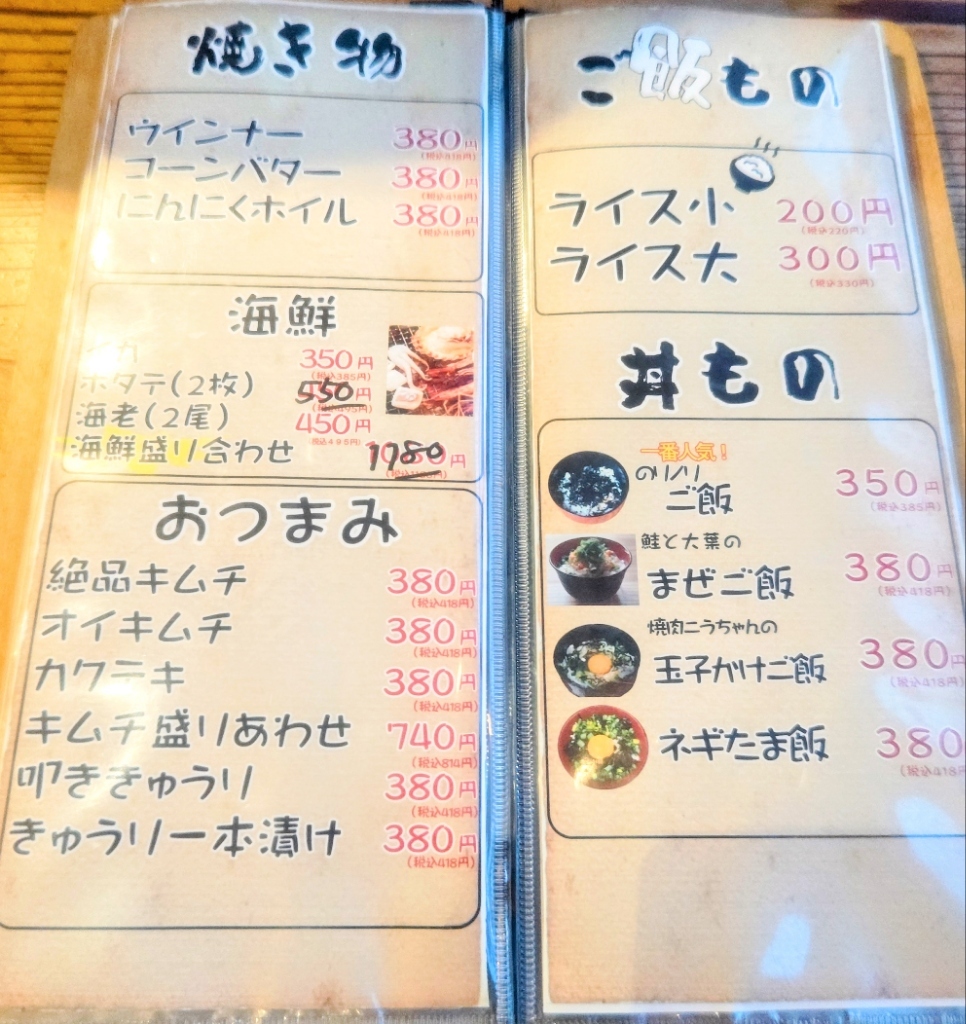 焼き物
ウインナー 380円
(税込418円)
コーンバター 380円
(税込418円)
にんにくホイル 380円
(税込418円)
海鮮
イカ 350円
(税込385円)
ホタテ(2枚) 550円
海老(2尾) 450円
(税込495円)
海鮮盛り合わせ 1980円
おつまみ
絶品キムチ 380円
(税込418円)
オイキムチ 380円
(税込418円)
カクテキ 380円
(税込418円)
キムチ盛りあわせ 740円
(税込814円)
叩ききゅうり 380円
(税込418円)
きゅうり一本漬け 380円
(税込418円)
ご飯もの
ライス小 200円
(税込220円)
ライス大 300円
(税込330円)
丼もの
一番人気!
のりノリ
ご飯 350円
(税込385円)
鮭と大葉の
まぜご飯 380円
(税込418円)
焼肉ニうちゃんの
玉子かけご飯 380円
(税込418円)
ネギたま飯 380
(税込418円